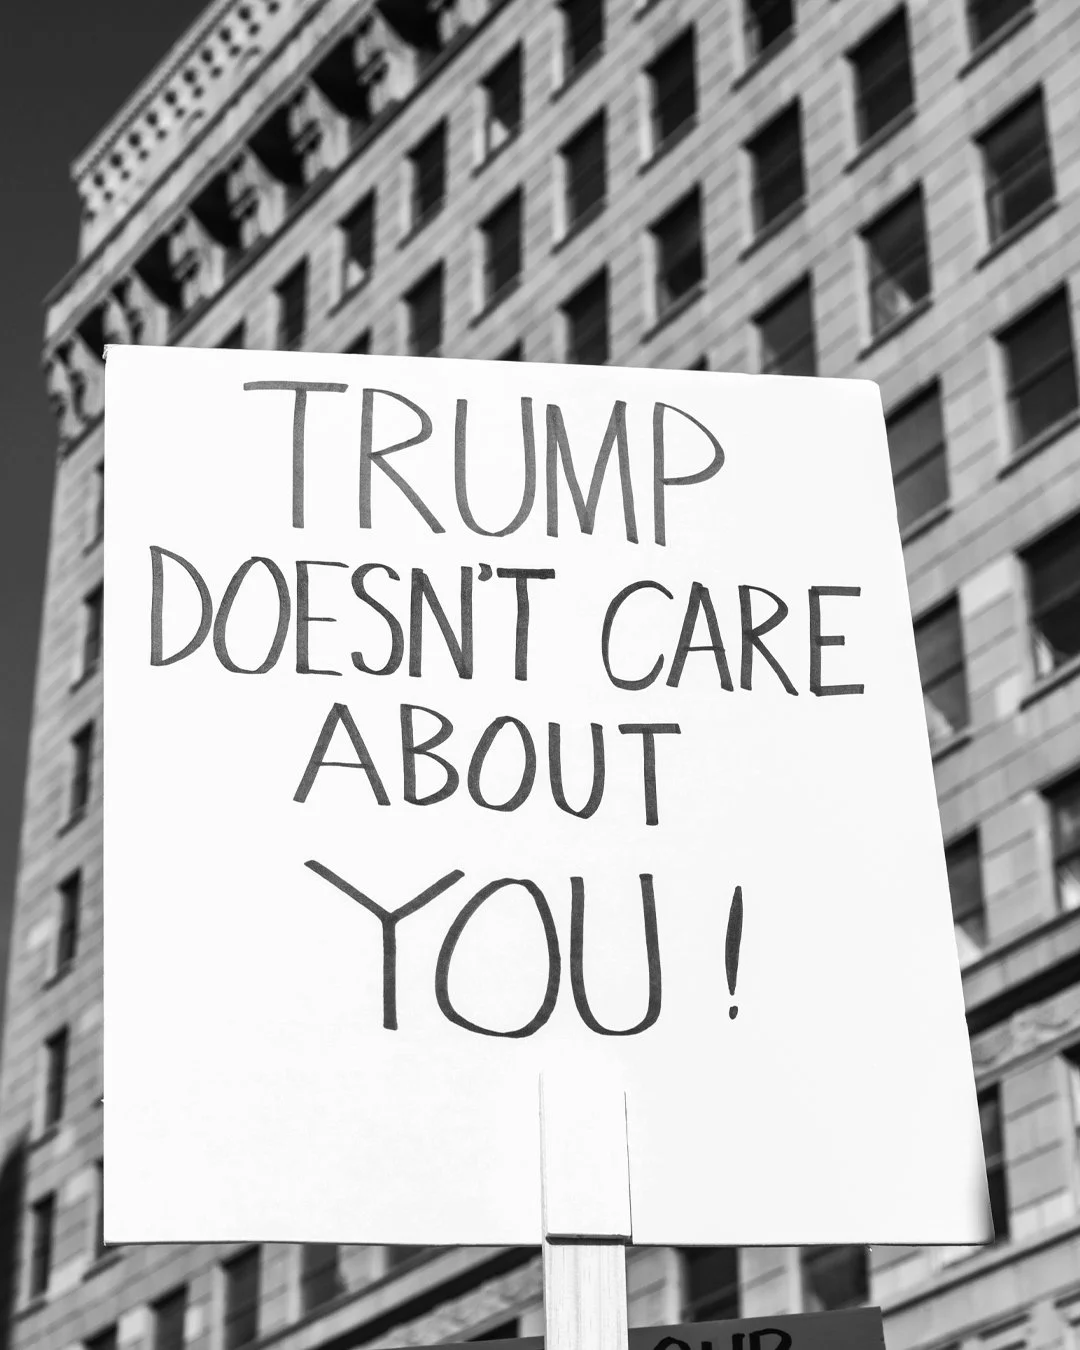 TRUMP
DOESN'T CARE
ABOUT
YOU!
OUR